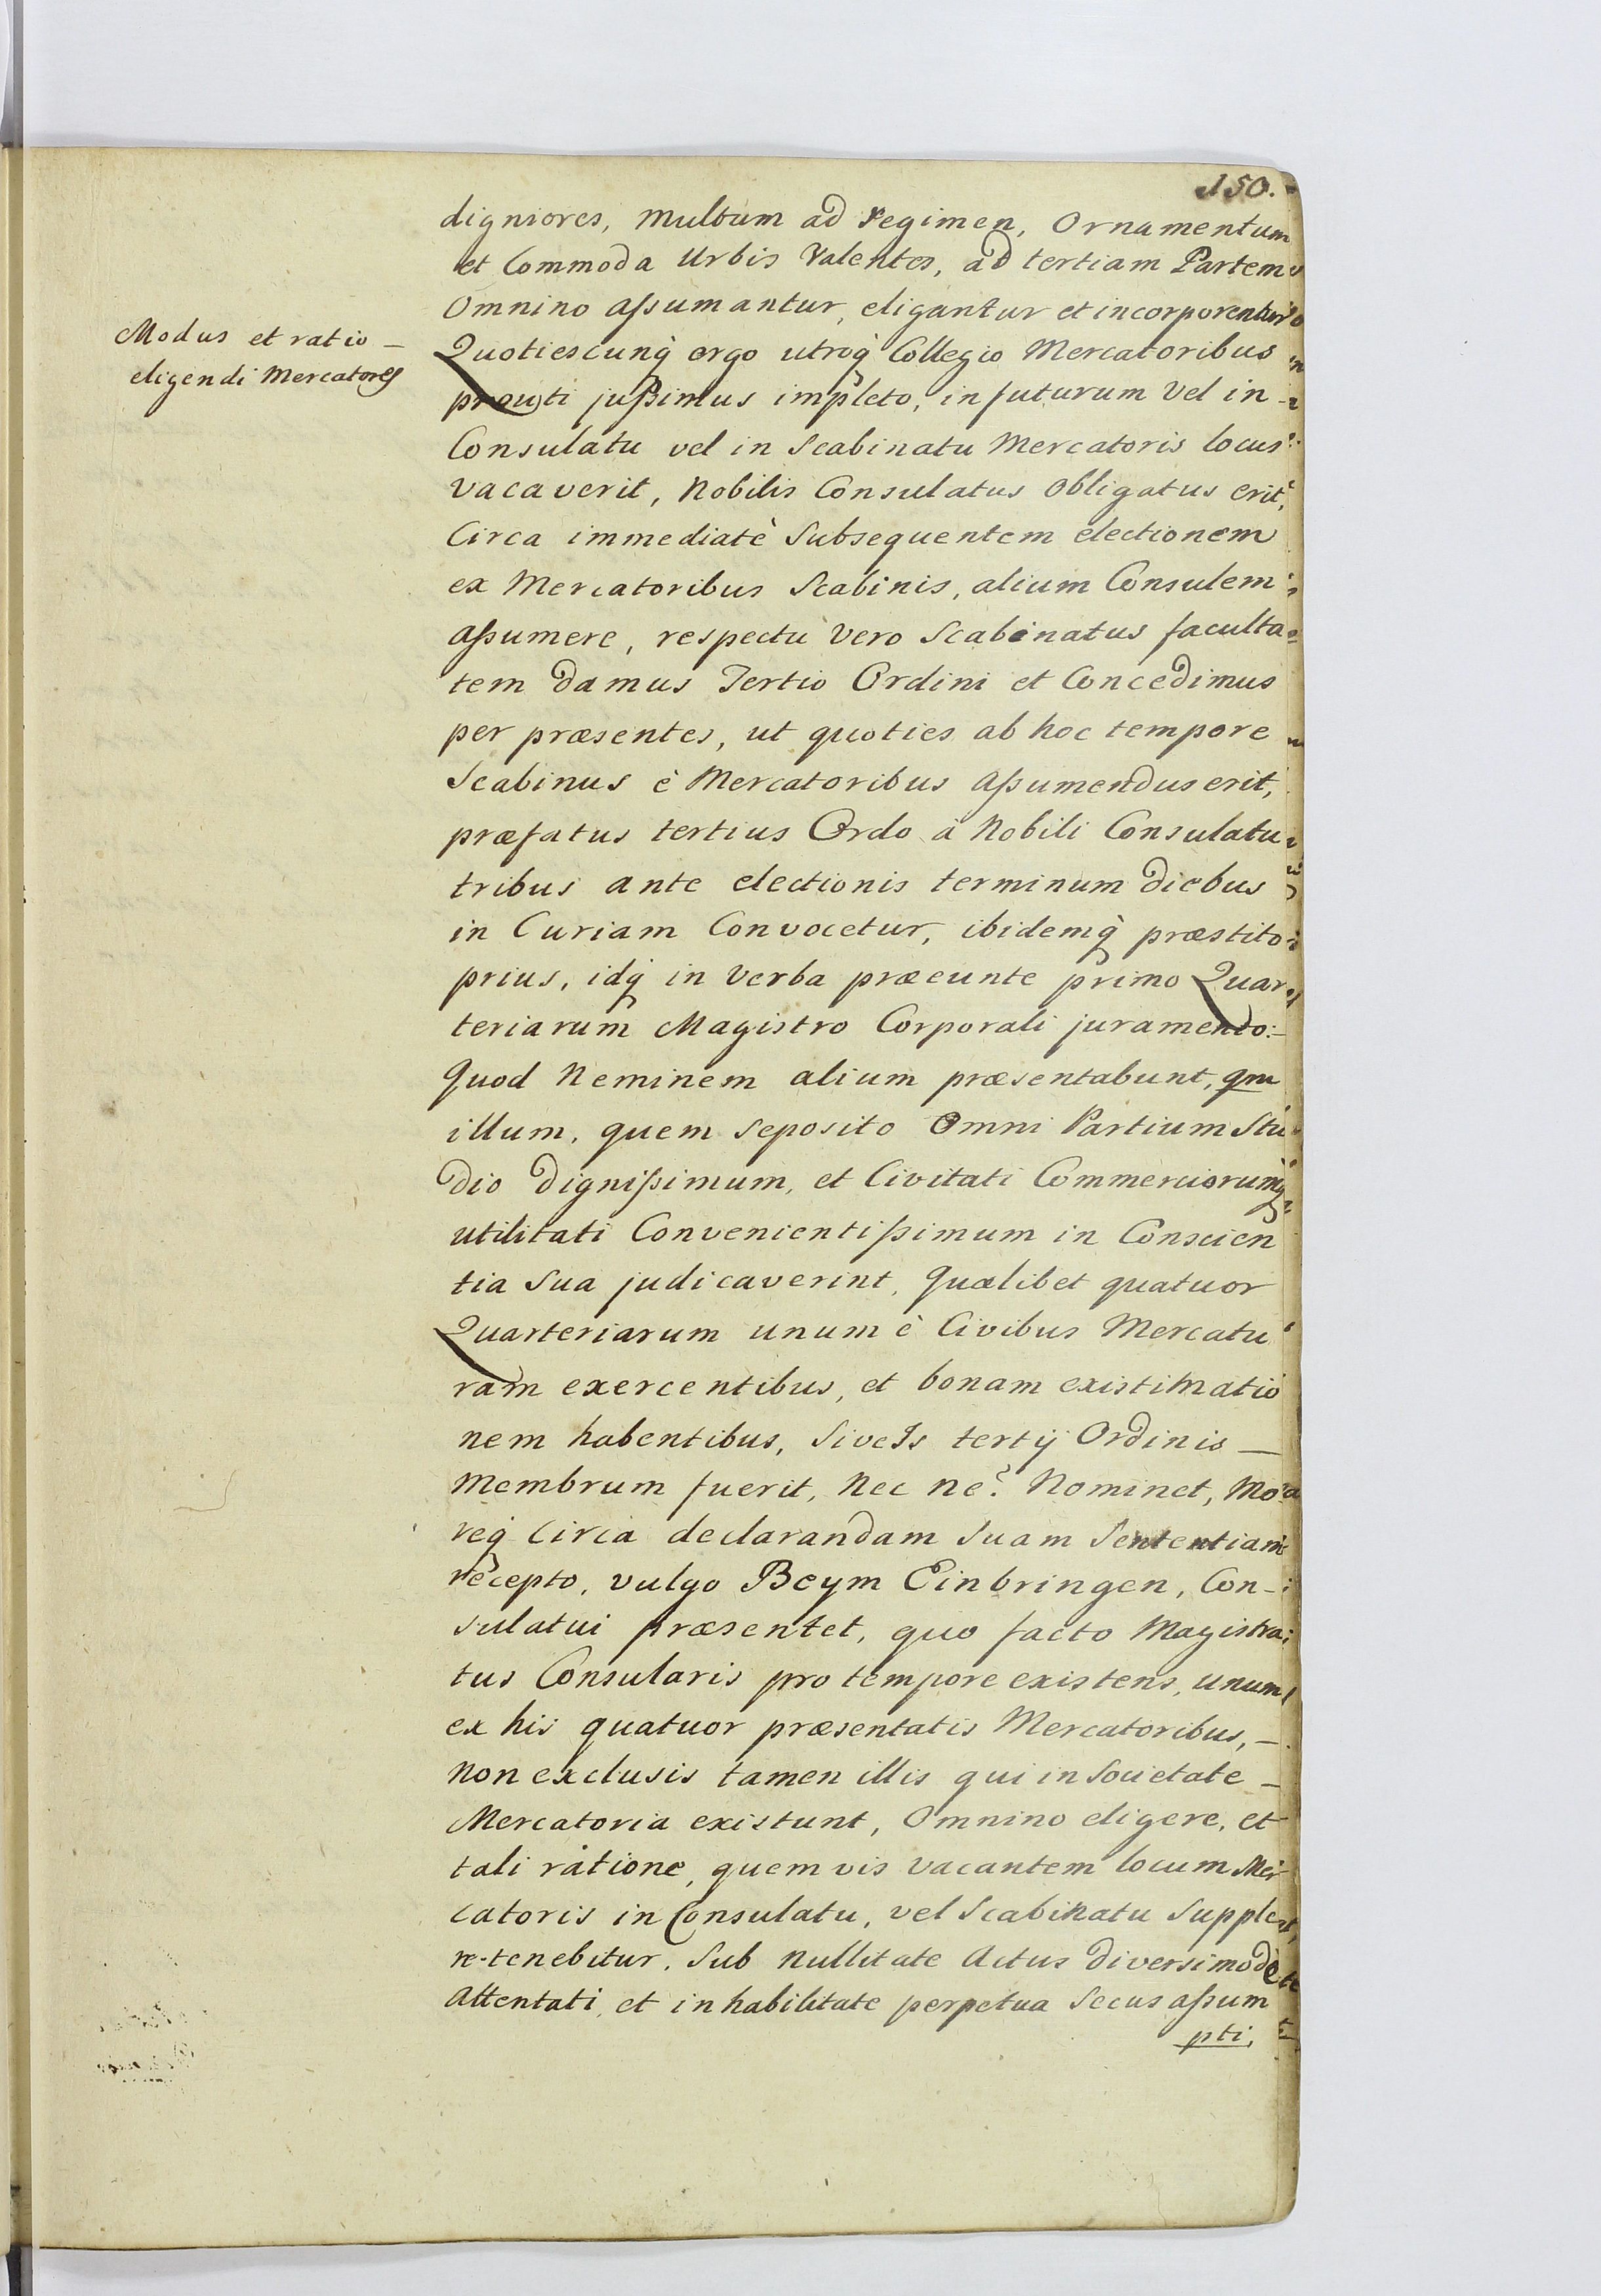 150.
digniores, multum ad regimen, Ornamentum
et Commoda Urbis Valentes, ad tertiam Partem
Omnino aßumantur, eligantur et incorporentur
Modus et ratio —
eligendi Mercatores
Quotiescunq́ ergo utroq́ Collegio Mercatoribus
prouti jußimus impleto, in futurum Vel in -
Consulatu vel in Scabinatu Mercatoris locus
vacaverit, Nobilis Consulatus obligatus erit,
Circa immediatè Subsequentem electionem
ex Mercatoribus Scabinis, alium Consulem
aßumere, respectu Vero Scabinatus faculta=
tem damus Tertio Ordini et Concedimus
per præsentes, ut quoties ab hoc tempore
Scabinus è Mercatoribus aßumendus erit,
præfatus tertius Ordo à Nobili Consulatu
tribus ante electionis terminum diebus
in Curiam Convocetur, ibidemq́ præstito
prius, idq́ in Verba præeunte primo Quar
teriarum Magistro Corporali juramento:-
Quod Neminem alium præsentabunt, qm
illum, quem seposito Omni Partium Stu
dio dignißimum, et Civitati Commerciorumq́
utilitati Convenientißimum in Conscien
tia Sua judicaverint, Quælibet quatuor
Quarteriarum unum è Civibus Mercatu
ram exercentibus, et bonam existimatio
nem habentibus, Sive Is tertÿ Ordinis —
Membrum fuerit, Nec ne? Nominet, Mo
req́ Circa declarandam Suam Sententiam
recepto, vulgo Beym Einbringen, Con-
sulatui præsentet, quo facto Magistra
tus Consularis pro tempore existens, unum
ex his quatuor præsentatis Mercatoribus, —
Non exclusis tamen illis qui in Societate —
Mercatoria existunt, Omnino eligere, et
tali ratione, quem vis vacantem locum Mer
catoris in Consulatu, vel Scabinatu Supple
re tenebitur. Sub nullitate Actus diversimodè
Attentati, et inhabilitate perpetua Secus aßum
pti,